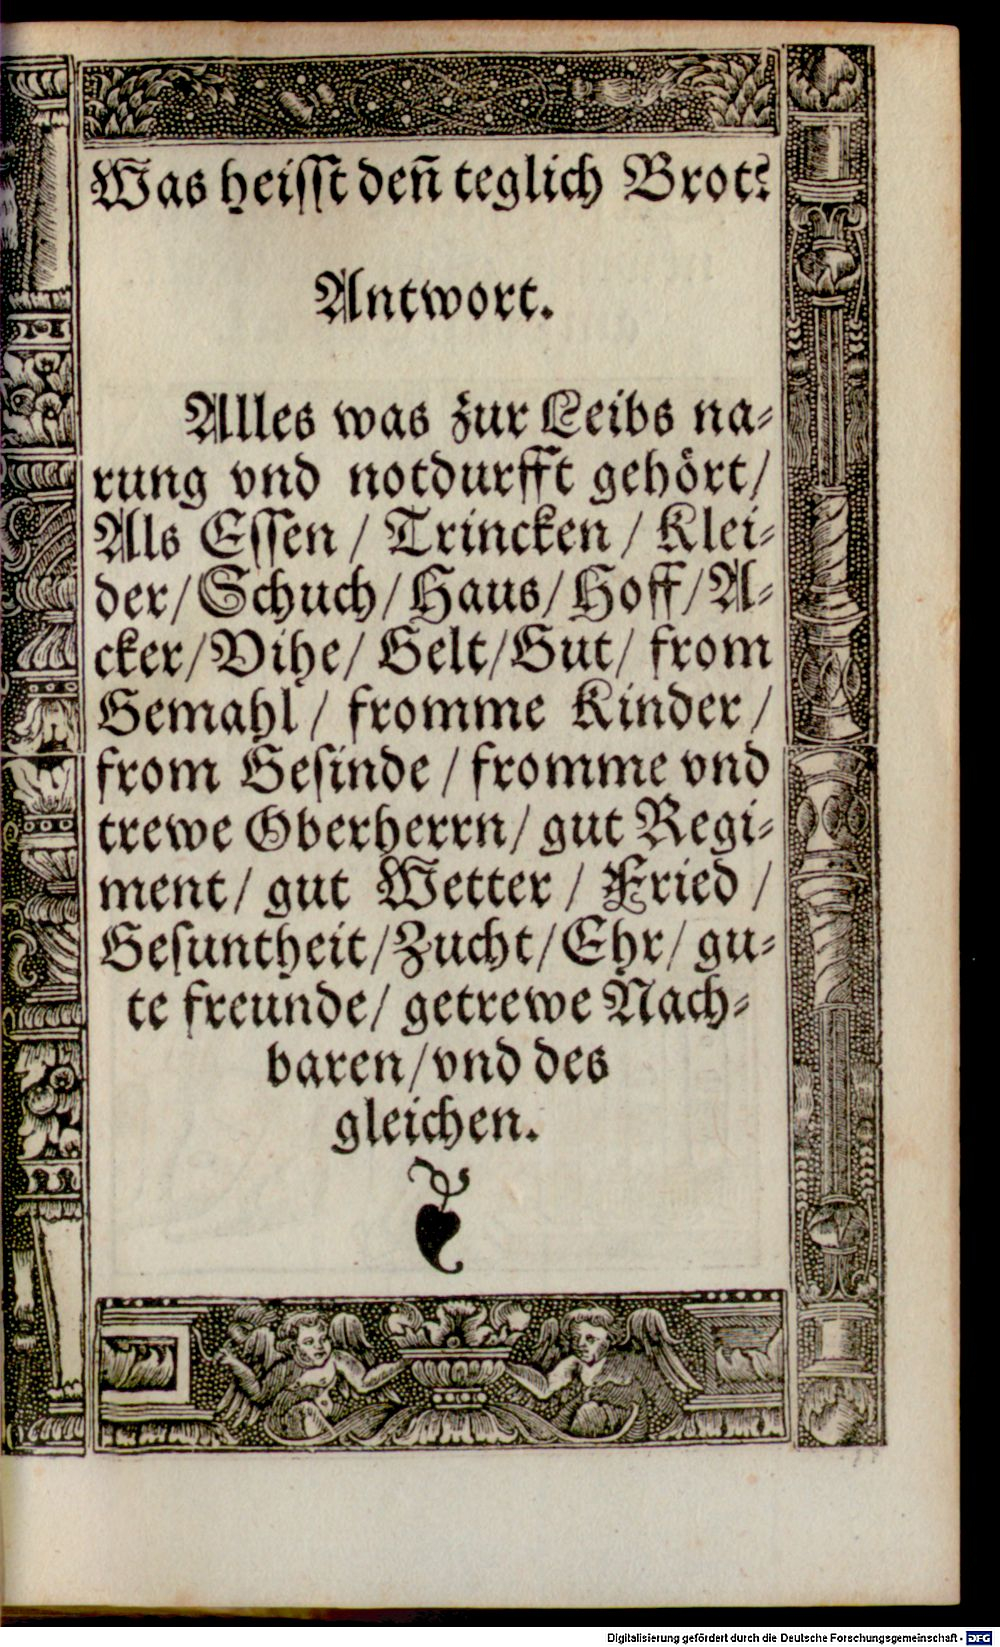 Was heisst deñ teglich Brot?
Antwort.
Alles was zur Leibs na-
rung vnd notdurfft gehört/
Als Essen / Trincken / Klei-
der/Schuch/Haus/Hoff/A-
cker/Vihe/ Gelt/Gut/ from
Gemahl / fromme Kinder /
from Gesinde / fromme vnd
trewe Oberherrn/ gut Regi-
ment/ gut Wetter / Fried /
Gesuntheit/Zucht/Ehr/ gu-
te freunde/ getrewe Nach-
baren/vnd des
gleichen.
Digitalisierung gefördert durch die Deutsche Forschungsgemeinschaft - DFG